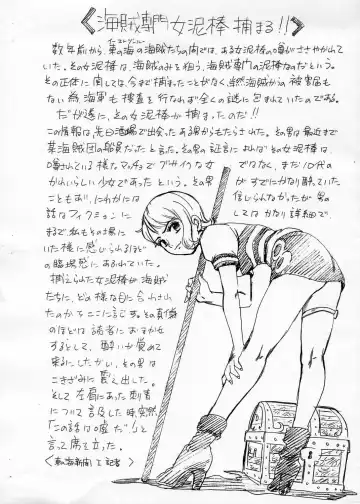 《海賊専門女泥棒捕まる!!》
数年前から、東の海の海賊たちの内では、ある女泥棒の噂がささやかれて
イーストブルー
いた。その女泥棒は、海賊のみを狙う、海賊専門の泥棒なのだという。
その正体に関しては、今まで捕まったことがなく、当然海賊からの被害届も
ない為、海軍も捜査を行なれず全くの謎に包まれていたのである。
だが遂に、その女泥棒が捕まったのだ!!
この情報は、先日酒場で出会ったある男からもたらされた。その男は最近まで
某海賊団の船員だったと言った。その男の証言によれば その女泥棒は
噂されている様なマッチョでブサイクな女 ではなく、まだ10代の
かわいらしい少女であったという。その男 がすでにかなり酔っていた
こともあり、にわかには 信じられなかったが 男の
話はフィクションに しては かなり詳細で、
まるで私もその場に
いた様に感じられるほど
の臨場感にあふれていた。
捕えられた女泥棒が海賊
たちに、どの様な目に合わされ
たのかをここに記す。その真偽
のほどは読者におまかせ
するとして、酔いが覚めて
来るにしたがい、その男は
こきざみに震え出した。
そして左肩にあった刺青
について言及した時、突然
「この話は嘘だ!」と
言って席を立った。